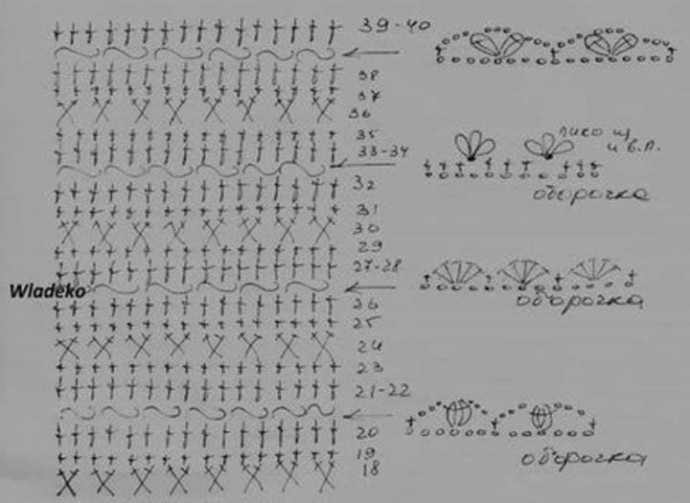 39-40
38
37
36
35
33-34
пико из
и в.п.
32
оборочка
31
30
29
27-28
Wladeko
26
оборочка
25
24
23
21-22
20
19
оборочка
18